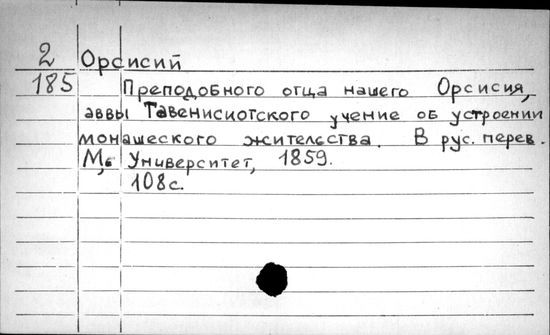 2 Орсисий
185 Преподобного отца нашего Орсисия,
аввы Тавенисиотского учение об устроении
монашеского жительства. В рус. перев.
М., Университет, 1859.
108с.